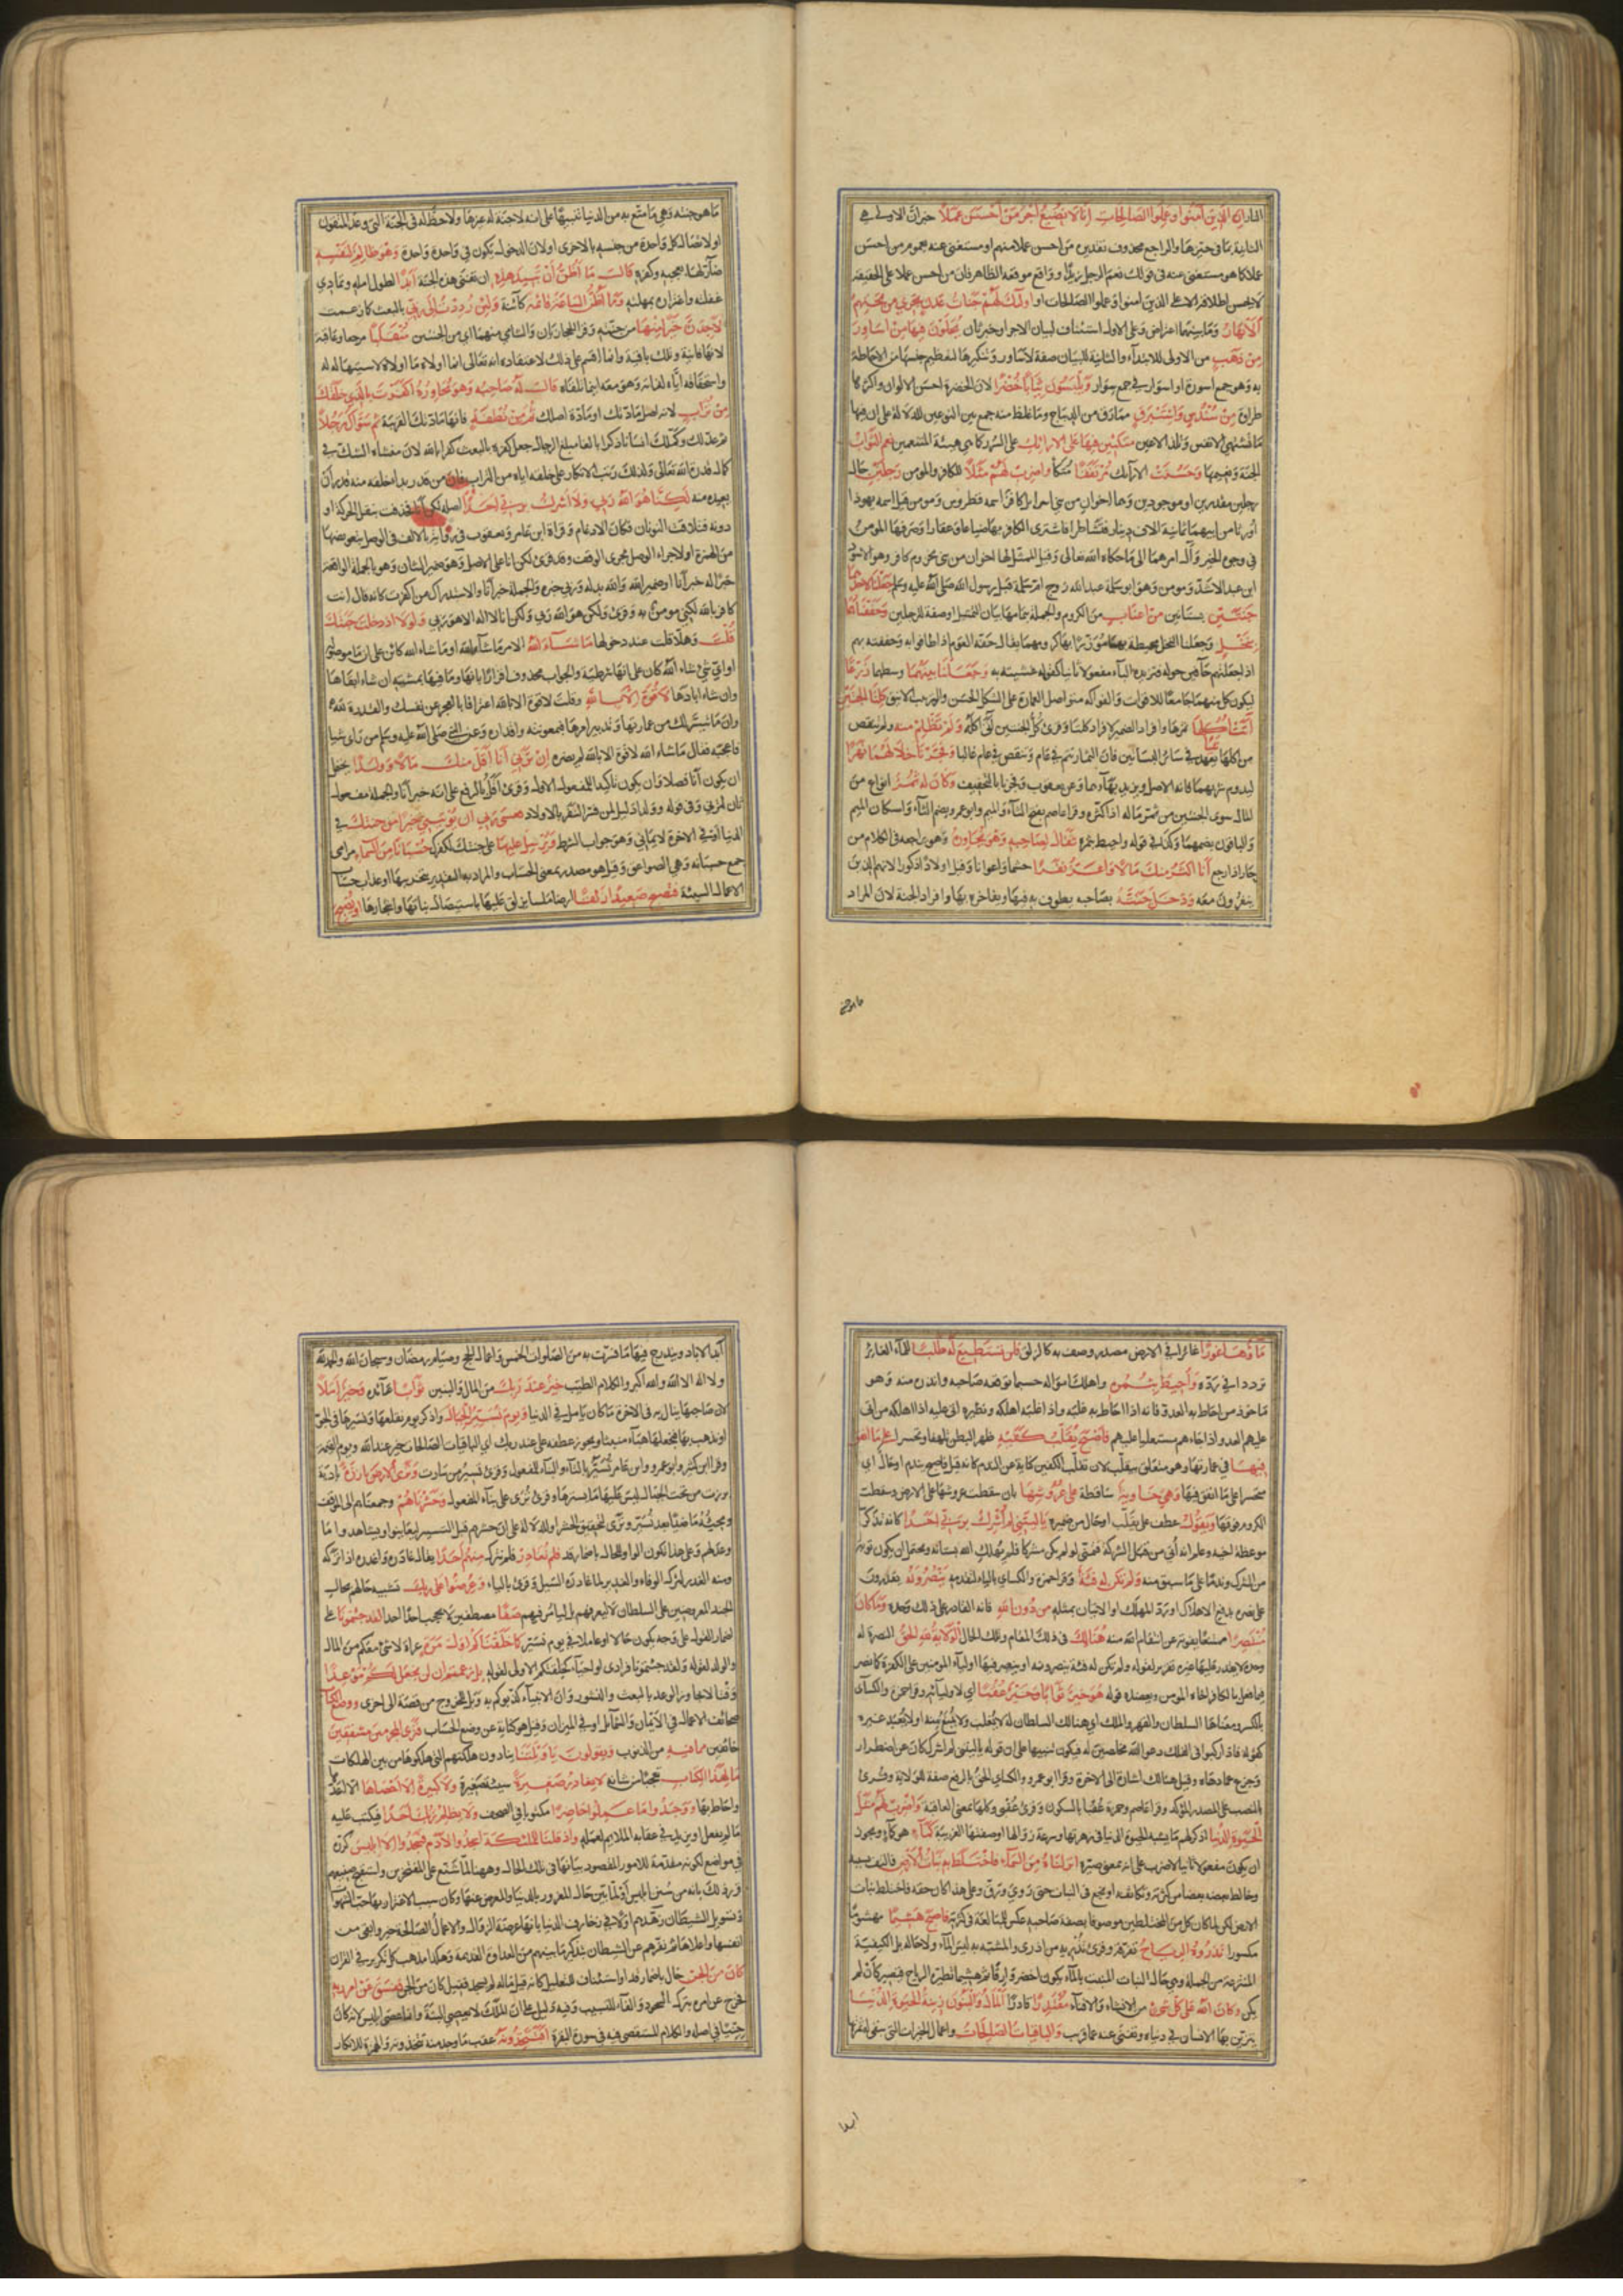 النار ان الذين آمنوا وعملوا الصالحات انا لا نضيع اجر من احسن عملا خبر ان الاولى هي
الثانية بما في حيزها والراجع محذوف تقديره من احسن عملا منهم او مستغنى عنه بعموم من احسن
عملا كما هو مستغنى عنه في قولك نعم الرجل زيد او واقع موقعه الظاهر فان من احسن عملا على الحقيقة
لا يحسن اطلاقه الا على الذين امنوا وعملوا الصالحات او اولئك لهم جنات عدن تجري من تحتهم
الانهار وما بينهما اعتراض وعلى الاول استئناف لبيان الاجر او خبر ثان يحلون فيها من اساور
من ذهب من الاولى للابتداء والثانية للبيان صفة لاساور وتنكيرها لتعظيم حسنها من الاحاطة
به وهو جمع اسورة او اسوار في جمع سوار ويلبسون ثيابا خضرا لان الخضرة احسن الالوان واكثرها
طراوة من سندس واستبرق مما رق من الديباج وما غلظ منه جمع بين النوعين للدلالة على ان فيها
ما تشتهي الانفس وتلذ الاعين متكئين فيها على الارائك على السرر كما هي هيئة المتنعمين نعم الثواب
الجنة ونعيمها وحسنت الارآئك مرتفقا متكأ واضرب لهم مثلا للكافر والمومن رجلين حال
رجلين مقدرين او موجودين وهما اخوان من بني اسرايل كافر اسمه قطروس ومومن اسمه يهوذا
ورثا من ابيهما ثمانية الاف دينار فتشاطرا فاشترى الكافر بها ضياعا وعقارا وصرفها المومن
في وجوه الخير وآل امرهما الى ما حكاه الله تعالى وقيل الممثل لهما اخوان من بني مخزوم كافر وهو الاسود
ابن عبد الاشد ومومن وهو ابو سلمة عبد الله زوج ام سلمة قبل رسول الله صلى الله عليه وسلم جعلنا لاحدهما
جنتين بستانين من اعناب من الكروم والجملة بتمامها بيان التمثيل او صفة للرجلين وحففناهما
بنخل وجعلنا النخل محيطة بهما موزرا بها كرومهما يقال حفه القوم اذا طافوا به وحففته بهم
اذا جعلتهم حافين حوله فتزيده الباء مفعولا ثانيا كقوله غشيته به وجعلنا بينهما وسطهما زرعا
ليكون كل منهما جامعا للاقوات والفواكه متواصل العمارة على الشكل الحسن والترتيب الانيق كلتا الجنتين
آتت اكلها ثمرها وافراد الضمير لافراد كلتا وقرئ كل الجنتين آتى اكله ولم تظلم منه ولم تنقص
من اكلها شيئا يعهد في سائر البساتين فان الثمار تتم في عام وتنقص في عام غالبا وفجرنا خلالهما نهرا
ليدوم شربهما فانه الاصل ويزيد بهاءهما وعن يعقوب وفجرنا بالتخفيف وكان له ثمر انواع من
المال سوى الجنتين من ثمر ماله اذا كثره وقرا عاصم بفتح الثاء والميم وابو عمرو بضم الثاء واسكان الميم
والباقون بضمهما وكذلك في قوله واحيط بثمره فقال لصاحبه وهو يحاوره وهو يراجعه في الكلام من
حار اذا رجع أنا اكثر منك مالا واعز نفرا حشما واعوانا وقيل اولادا ذكورا لانهم الذين
ينفرون معه ودخل جنته بصاحبه يطوف به فيها ويفاخره بها وافراد الجنة لان المراد
ما هو جنته وهي ما متع به من الدنيا تنبيها على انه لا جنة له غيرها ولا حظ له في الجنة التي وعد المتقون
او لاتصال كل واحدة من جنتيه بالاخرى او لان الدخول يكون في واحدة واحدة وهو ظالم لنفسه
ضار لها بعجبه وكفره قال ما اظن ان تبيد هذه ان تفنى هذه الجنة ابدا لطول امله وتمادي
غفلته واغتراره بمهلته وما اظن الساعة قائمة كائنة ولئن رددت الى ربي بالبعث كما زعمت
لاجدن خيرا منها من جنته وقرا الحجازيان والشامي منهما اي من الجنتين منقلبا مرجعا وعاقبة
لانها فانية وتلك باقية وانما اقسم على ذلك لاعتقاده انه تعالى انما اولاه ما اولاه لاستيهاله
واستحقاقه اياه لذاته وهو معه اينما تلقاه قال له صاحبه وهو يحاوره اكفرت بالذي خلقك
من تراب لانه اصل مادتك او مادة اصلك ثم من نطفة فانها مادتك القريبة ثم سواك رجلا
ثم عدلك وكملك انسانا ذكرا بالغا مبلغ الرجال جعل كفره بالبعث كفرا بالله لان منشأه الشك في
كمال قدرة الله تعالى ولذلك رتب الانكار على خلقه اياه من التراب فان من قدر بدء خلقه منه قدر ان
يعيده منه لكنا هو الله ربي ولا اشرك بربي احدا اصله لكن انا فحذفت بنقل الحركة او
دونه فتلاقت النونان فكان الادغام وقراة ابن عامر ويعقوب في رواية بالالف في الوصل لتعويضها
من الهمزة او لاجراء الوصل مجرى الوقف وقد قرئ لكن انا على الاصل وهو ضمير الشان وهو بالجملة الواقعة
خبرا له خبر أنا او ضمير الله والله بدله وربي خبره والجملة خبر أنا والاستدراك من اكفرت كانه قال انت
كافر بالله لكني مومن به وقرئ ولكن هو الله ربي ولكن انا لا اله الا هو ربي ولولا اذ دخلت جنتك
قلت وهلا قلت عند دخولها ما شاء الله الامر ما شاء الله او ما شاء الله كائن على ان ما موصولة
او اي شيء شاء الله كان على انها شرطية والجواب محذوف اقرارا بانها وما فيها بمشيته ان شاء ابقاها
وان شاء ابادها لا قوة الا بالله وقلت لا قوة الا بالله اعترافا بالعجز عن نفسك والقدرة لله
وان ما تيسر لك من عمارتها وتدبير امرها فبمعونته واقداره وعن النبي صلى الله عليه وسلم من راى شيا
فاعجبه فقال ما شاء الله لا قوة الا بالله لم يضره ان ترني أنا اقل منك مالا وولدا يحتمل
ان يكون أنا فصلا وان يكون تاكيدا للمفعول الاول وقرئ أقل بالرفع على انه خبر أنا والجملة مفعول
ثان لترني وفي قوله وولدا دليل لمن فسر النفر بالاولاد فعسى ربي ان يوتيني خيرا من جنتك في
الدنيا او في الاخرة لايماني وهو جواب الشرط ويرسل عليها على جنتك لكفرك حسبانا من السماء مرامي
جمع حسبانة وهي الصواعق وقيل هو مصدر بمعنى الحساب والمراد به التقدير بتخريبها او عذاب حساب
الاعمال السيئة فتصبح صعيدا زلقا ارضا ملساء يزلق عليها باستيصال بناتها واشجارها او يصبح
ماؤها غورا غائرا في الارض مصدر وصف به كالزلق فلن تستطيع له طلبا للماء الغائر
تردد افي رده واحيط بثمره واهلك امواله حسبما توقعه صاحبه وانذره منه وهو
ماخوذ من احاط به العدو فانه اذا احاط به غلبه واذا غلبه اهلكه ونظيره اتى عليه اذا اهلكه من اتى
عليهم العدو اذا جاءهم مستعليا عليهم فاصبح يقلب كفيه ظهر البطن تلهفا وتحسرا على ما انفق
فيها في عمارتها وهو متعلق بيقلب لان تقليب الكفين كناية عن الندم كانه قيل فاصبح يندم او حال اي
متحسرا على ما انفق فيها وهي خاوية ساقطة على عروشها بان سقطت عروشها على الارض وسقطت
الكروم فوقها ويقول عطف على يقلب او حال من ضميره يا ليتني لم اشرك بربي احدا كانه تذكر
موعظة اخيه وعلم انه أتي من قبل الشرك فتمنى لو لم يكن مشركا فلم يهلك الله بستانه ويحتمل ان يكون توبة
من الشرك وندما على ما سبق منه ولم تكن له فئة وقرا حمزة والكساي بالياء لتقدمه ينصرونه يقدرون
على نصره بدفع الاهلاك او رد المهلك او الاتيان بمثله من دون الله فانه القادر على ذلك وحده وما كان
منتصرا ممتنعا بقوته عن انتقام الله منه هنالك في ذلك المقام وتلك الحال الولاية لله الحق النصرة له
وحده لا يقدر عليها غيره تقرير لقوله ولم تكن له فئة ينصرونه او ينصر فيها اولياءه المومنين على الكفرة كما نصر
فيما فعل بالكافر اخاه المومن ويعضده قوله هو خير ثوابا وخير عقبا اي لاوليائه وقرا حمزة والكساي
بالكسر ومعناها السلطان والقهر والملك اي هنالك السلطان له لا يغلب ولا يمنع منه او لا يعبد غيره
كقوله فاذا ركبوا في الفلك دعوا الله مخلصين له فيكون تنبيها على ان قوله يا ليتني لم اشرك كان عن اضطرار
وجزع مما دهاه وقيل هنالك اشارة الى الاخرة وقرا ابو عمرو والكساي الحق بالرفع صفة للولاية وقرئ
بالنصب على المصدر المؤكد وقرا عاصم وحمزة عقبا بالسكون وقرئ عقبى وكلها بمعنى العاقبة واضرب لهم مثل
الحيوة الدنيا اذكر لهم ما يشبه الحيوة الدنيا في زهرتها وسرعة زوالها او صفتها الغريبة كماء هو كماء ويجوز
ان يكون مفعولا ثانيا لاضرب على انه بمعنى صير انزلناه من السماء فاختلط به نبات الارض فالتف بسببه
وخالط بعضه بعضا من كثرته وتكاثفه او نجع في النبات حتى روي ورق وعلى هذا كان حقه فاختلط بنبات
الارض لكن لما كان كل من المختلطين موصوفا بصفة صاحبه عكس للمبالغة في كثرته فاصبح هشيما مهشوما
مكسورا تذروه الرياح تفرقه وقرئ تذريه من اذرى والمشبه به ليس الماء ولا حاله بل الكيفية
المنتزعة من الجملة وهي حال النبات المنبت بالماء يكون اخضر وارقا ثم هشيما تطيره الرياح فيصير كأن لم
يكن وكان الله على كل شيء من الانشاء والافناء مقتدرا قادرا المال والبنون زينة الحيوة الدنيا
يتزين بها الانسان في دنياه وتفنى عنه عما قريب والباقيات الصالحات واعمال الخيرات التي تبقى له ثمرتها
أبد الاباد ويندرج فيها ما فسرت به من الصلوات الخمس واعمال الحج وصيام رمضان وسبحان الله والحمد لله
ولا اله الا الله والله اكبر والكلام الطيب خير عند ربك من المال والبنين ثوابا عائدة وخير املا
لان صاحبها ينال به في الاخرة ما كان يامل في الدنيا ويوم نسير الجبال واذكر يوم نقلعها ونسيرها في الجو
او نذهب بها فنجعلها هباء منبثا ويجوز عطفه على عند ربك اي الباقيات الصالحات خير عند الله ويوم القيمة
وقرا ابن كثير وابو عمرو وابن عامر تسير بالتاء والبناء للمفعول وقرئ تسير من سارت وترى الارض بارزة بادية
برزت من تحت الجبال ليس عليها ما يسترها وقرئ ترى على بناء المفعول وحشرناهم وجمعناهم الى الموقف
ومجيئه ماضيا بعد نسير وترى لتحقيق الحشر او للدلالة على ان حشرهم قبل التسيير ليعاينوا ويشاهدوا ما
وعد لهم وعلى هذا تكون الواو للحال باضمار قد فلم نغادر فلم نترك منهم احدا يقال غادره واغدره اذا تركه
ومنه الغدر لترك الوفاء والغدير لما غادره السيل وقرئ بالياء وعرضوا على ربك تشبيه حالهم بحال
الجند المعروضين على السلطان لا ليعرفهم بل ليامر فيهم صفا مصطفين لا يحجب احد احدا لقد جئتمونا على
اضمار القول على وجه يكون حالا او عاملا في يوم نسير كما خلقناكم اول مرة عراة لا شئ معكم من المال
والولد لقوله ولقد جئتمونا فرادى او احياء كخلقتكم الاولى لقوله بل زعمتم ان لن نجعل لكم موعدا
وقتا لانجاز الوعد بالبعث والنشور وان الانبياء كذبوكم به وبل للخروج من قصة الى اخرى ووضع الكتاب
صحائف الاعمال في الايمان والشمائل او في الميزان وقيل هو كناية عن وضع الحساب فترى المجرمين مشفقين
خائفين مما فيه من الذنوب ويقولون يا ويلتنا ينادون هلكتهم التي هلكوها من بين الهلكات
مال هذا الكتاب تعجبا من شانه لا يغادر صغيرة سيئة صغيرة ولا كبيرة الا احصاها الا عدها
واحاط بها ووجدوا ما عملوا حاضرا مكتوبا في الصحف ولا يظلم ربك احدا فيكتب عليه
ما لم يفعل او يزيد في عقابه الملايم لعمله واذ قلنا للملئكة اسجدوا لآدم فسجدوا الا ابليس كرره
في مواضع لكونه مقدمة للامور المقصود بيانها في تلك الحال وههنا لما شنع على المفتخرين واستقبح صنيعهم
قرر ذلك بانه من سنن ابليس او لما بين حال المغرور بالدنيا والمعرض عنها وكان سبب الاغترار بها حب الشهوات
وتسويل الشيطان زهدهم اولا في زخارف الدنيا بانها عرضة الزوال والاعمال الصالحة خير وابقى من
انفسها واعلاها ثم نفرهم عن الشيطان بتذكير ما بينهم من العداوة القديمة وهكذا مذهب كل تكرير في القران
كان من الجن حال باضمار قد او استئناف للتعليل كانه قيل ماله لم يسجد فقيل كان من الجن ففسق عن امر ربه
فخرج عن امره بترك السجود والفاء للتسبيب وفيه دليل على ان الملك لا يعصي البتة وانما عصى ابليس لانه كان
جنيا في اصله والكلام المستقصى فيه في سورة البقرة افتتخذونه عقب ما وجد منه تتخذونه والهمزة للانكار
ابدا